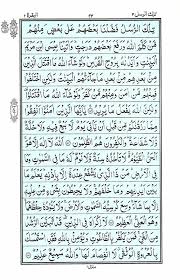 تلك الرسل ٣ ٤٣ البقرة ٢
تِلْكَ الرُّسُلُ فَضَّلْنَا بَعْضَهُمْ عَلٰى بَعْضٍ مِنْهُمْ
مَّنْ كَلَّمَ اللّٰهُ وَرَفَعَ بَعْضَهُمْ دَرَجٰتٍ وَاٰتَيْنَا عِيْسَى ابْنَ مَرْيَمَ
الْبَيِّنٰتِ وَاَيَّدْنٰهُ بِرُوْحِ الْقُدُسِ وَلَوْ شَآءَ اللّٰهُ مَا اقْتَتَلَ الَّذِيْنَ
مِنْۢ بَعْدِهِمْ مِّنْۢ بَعْدِ مَا جَآءَتْهُمُ الْبَيِّنٰتُ وَلٰكِنِ اخْتَلَفُوْا
فَمِنْهُمْ مَّنْ اٰمَنَ وَمِنْهُمْ مَّنْ كَفَرَ وَلَوْ شَآءَ اللّٰهُ مَا اقْتَتَلُوْا
وَلٰكِنَّ اللّٰهَ يَفْعَلُ مَا يُرِيْدُ يٰۤاَيُّهَا الَّذِيْنَ اٰمَنُوْۤا اَنْفِقُوْا مِمَّا
رَزَقْنٰكُمْ مِّنْ قَبْلِ اَنْ يَّاْتِيَ يَوْمٌ لَّا بَيْعٌ فِيْهِ وَلَا خُلَّةٌ وَّلَا
شَفَاعَةٌ وَالْكٰفِرُوْنَ هُمُ الظّٰلِمُوْنَ اَللّٰهُ لَاۤ اِلٰهَ اِلَّا هُوَ اَلْحَيُّ
الْقَيُّوْمُ لَا تَاْخُذُهٗ سِنَةٌ وَّلَا نَوْمٌ لَهٗ مَا فِي السَّمٰوٰتِ وَمَا
فِي الْاَرْضِ مَنْ ذَا الَّذِيْ يَشْفَعُ عِنْدَهٗۤ اِلَّا بِاِذْنِهٖ يَعْلَمُ مَا بَيْنَ
اَيْدِيْهِمْ وَمَا خَلْفَهُمْ وَلَا يُحِيْطُوْنَ بِشَيْءٍ مِّنْ عِلْمِهٖۤ اِلَّا
بِمَا شَآءَ وَسِعَ كُرْسِيُّهُ السَّمٰوٰتِ وَالْاَرْضَ وَلَا يَئُوْدُهٗ حِفْظُهُمَا
وَهُوَ الْعَلِيُّ الْعَظِيْمُ لَاۤ اِكْرَاهَ فِي الدِّيْنِ قَدْ تَّبَيَّنَ الرُّشْدُ مِنَ
الْغَيِّ فَمَنْ يَّكْفُرْ بِالطَّاغُوْتِ وَيُؤْمِنْۢ بِاللّٰهِ فَقَدِ اسْتَمْسَكَ
بِالْعُرْوَةِ الْوُثْقٰى لَا انْفِصَامَ لَهَا وَاللّٰهُ سَمِيْعٌ عَلِيْمٌ
منزل١